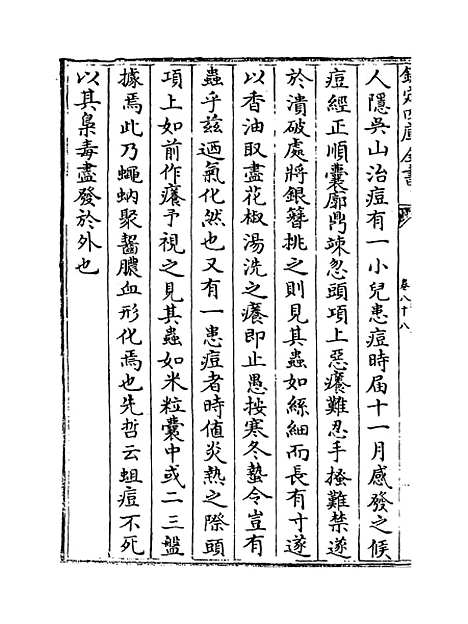 欽定四庫全書
卷八十八
人隱吳山治痘有一小兒患痘時届十一月感發之候
痘經正順囊廓鬥竦忽頭項上惡癢難忍手搔難禁遂
於潰破處將銀簪挑之則見其蟲如絲細而長有寸遂
以香油取盡花椒湯洗之癢即止愚按寒冬蟄令豈有
蟲乎兹廼氣化然也又有一患痘者時值炎熱之際頭
項上如前作癢予視之見其蟲如米粒囊中或二三盤
據焉此乃蠅蚋聚齧膿血形化焉也先哲云蛆痘不死
以其梟毒盡發於外也